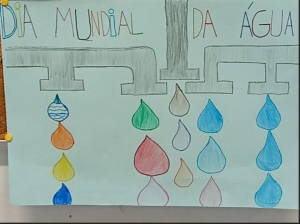 DIA MUNDIAL DA ÁGUA